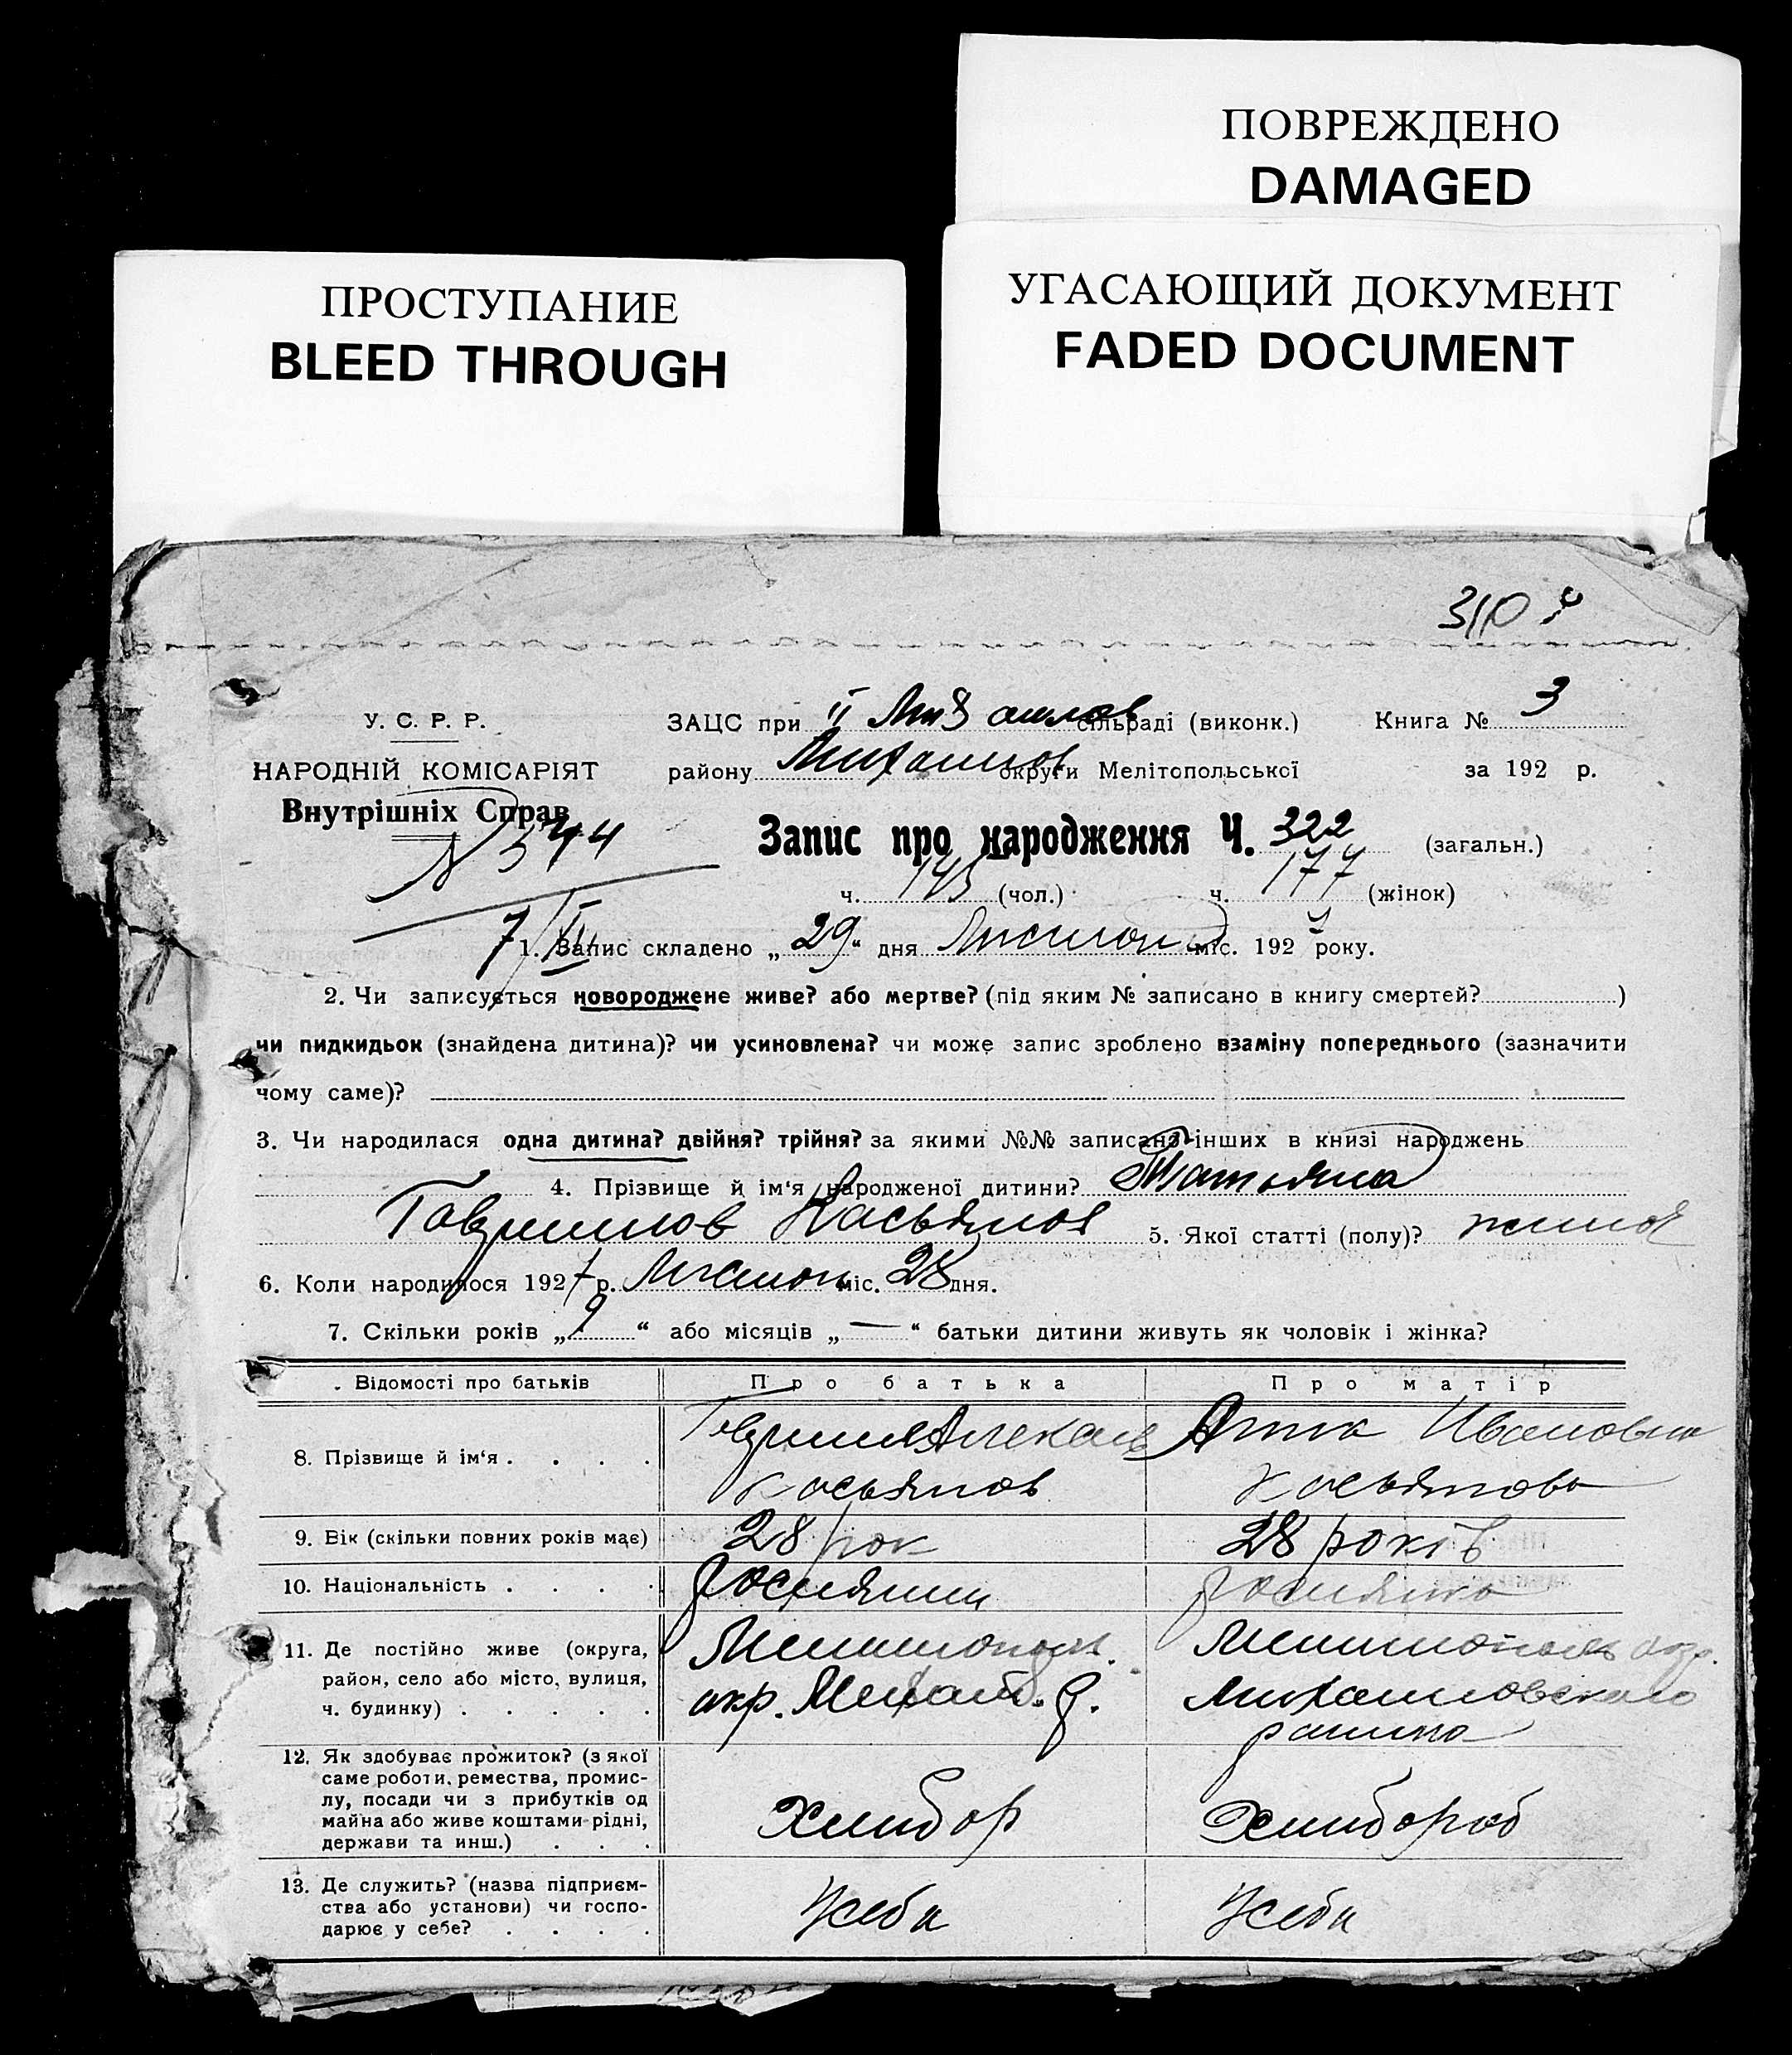 ПОВРЕЖДЕНО
DAMAGED
ПРОСТУПАНИЕ
BLEED THROUGH
УГАСАЮЩИЙ ДОКУМЕНТ
FADED DOCUMENT
310
У. С. Р. Р.
НАРОДНІЙ КОМІСАРІЯТ
Внутрішніх Справ
N 544
ЗАЦС при II Михайлов сільраді (виконк.) Книга № 3
району Михайлов округи Мелітопольської за 192 р.
Запис про народження Ч. 322 (загальн.)
ч. 145 (чол.) ч. 177 (жінок)
7/XII
1. Запис складено „29“ дня Листопад міс. 1927 року.
2. Чи записується новороджене живе? або мертве? (під яким № записано в книгу смертей? )
чи пидкидьок (знайдена дитина)? чи усиновлена? чи може запис зроблено взаміну попереднього (зазначити
чому саме)?
3. Чи народилася одна дитина? двійня? трійня? за якими №№ записано інших в книзі народжень
4. Прізвище й ім'я народженої дитини? Татьяна
Гаврилов Касьянов 5. Якої статті (полу)? жіноч
6. Коли народилося 1927 р. Листопа міс. 28 дня.
7. Скільки років „9“ або місяців „—“ батьки дитини живуть як чоловік і жінка?
Відомості про батьків Про батька Про матір
8. Прізвище й ім'я . . . . Гаврило Алексав Анна Ивановна
Касьянов Касьянова
9. Вік (скільки повних років має) 28 рок 28 років
10. Національність . . . . росиянин росиянка
11. Де постійно живе (округа, район, село або місто, вулиця, ч. будинку) . . . . . Мелитополь. Мелитополь окр.
окр. Михайл. р. Михайловского
району
12. Як здобуває прожиток? (з якої саме роботи, ремества, промислу, посади чи з прибутків од майна або живе коштами рідні, держави та инш.) . . . Хлибор Хлибороб
13. Де служить? (назва підприємства або установи) чи господарює у себе? . . . . Усеби Усеби